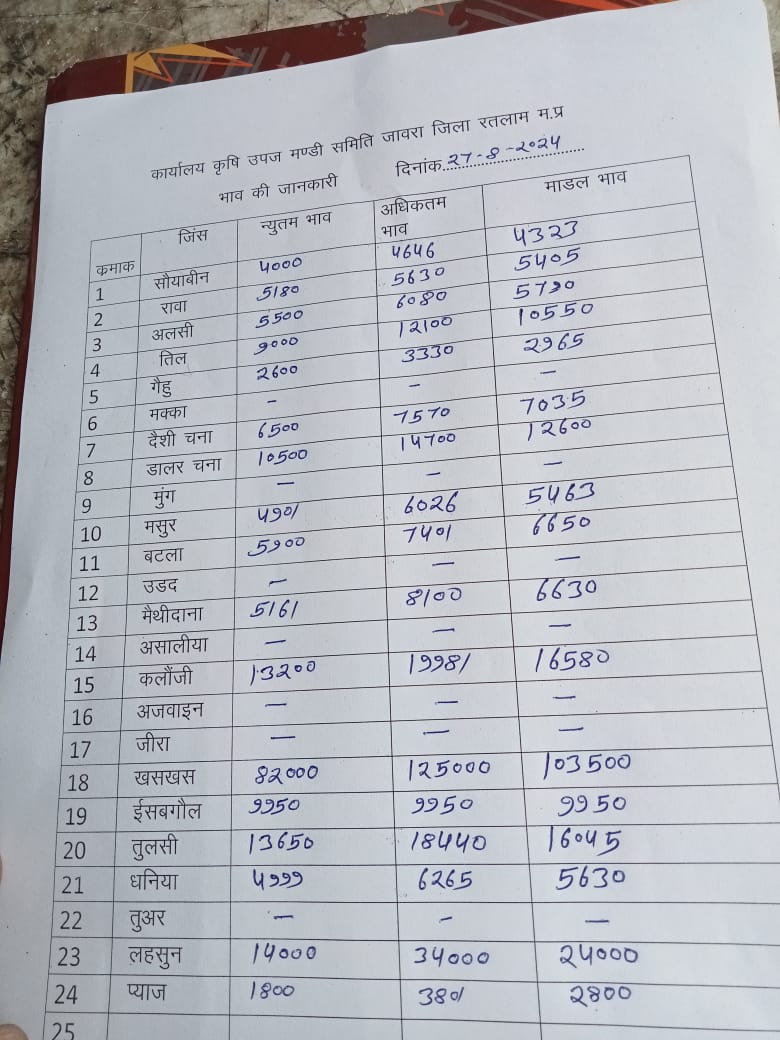 कार्यालय कृषि उपज मण्डी समिति जावरा जिला रतलाम म.प्र
भाव की जानकारी दिनांक 27-8-2024
क्रमाक जिंस न्युतम भाव अधिकतम भाव माडल भाव
1 सौयाबीन 4000 4646 4323
2 रावा 5180 5630 5405
3 अलसी 5500 6080 5790
4 तिल 9000 12100 10550
5 गैहु 2600 3330 2965
6 मक्का - - -
7 दैशी चना 6500 7570 7035
8 डालर चना 10500 14700 12600
9 मुंग - - -
10 मसुर 4901 6026 5463
11 बटला 5900 7401 6650
12 उडद - - -
13 मैथीदाना 5161 8100 6630
14 असालीया - - -
15 कलौंजी 13200 19981 16580
16 अजवाइन - - -
17 जीरा - - -
18 खसखस 82000 125000 103500
19 ईसबगौल 9950 9950 9950
20 तुलसी 13650 18440 16045
21 धनिया 4999 6265 5630
22 तुअर - - -
23 लहसुन 14000 34000 24000
24 प्याज 1800 3801 2800
25